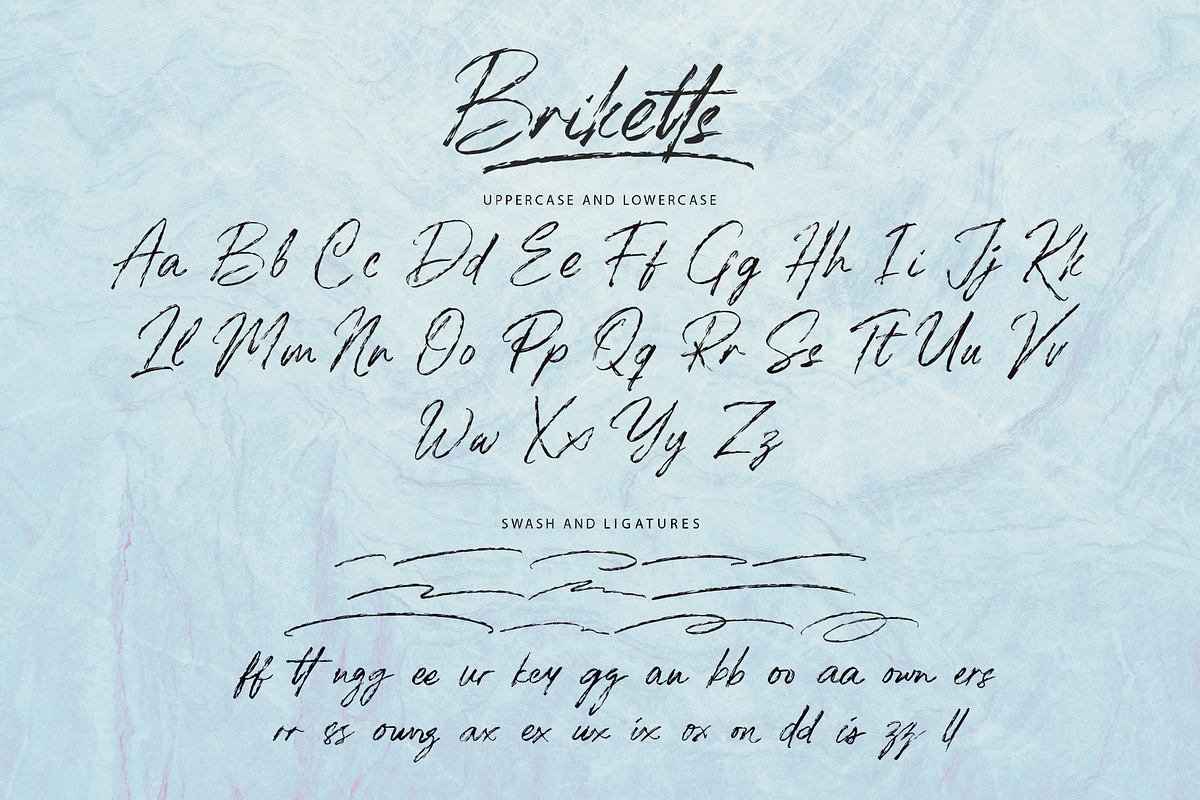 Briketts
UPPERCASE AND LOWERCASE
Aa Bb Cc Dd Ee Ff Gg Hh Ii Jj Kk
Ll Mm Nn Oo Pp Qq Rr Ss Tt Uu Vv
Ww Xx Yy Zz
SWASH AND LIGATURES
ff tt ngg ee ur key gg an bb oo aa own ers
rr ss oung ax ex ux ix ox on dd is zz ll